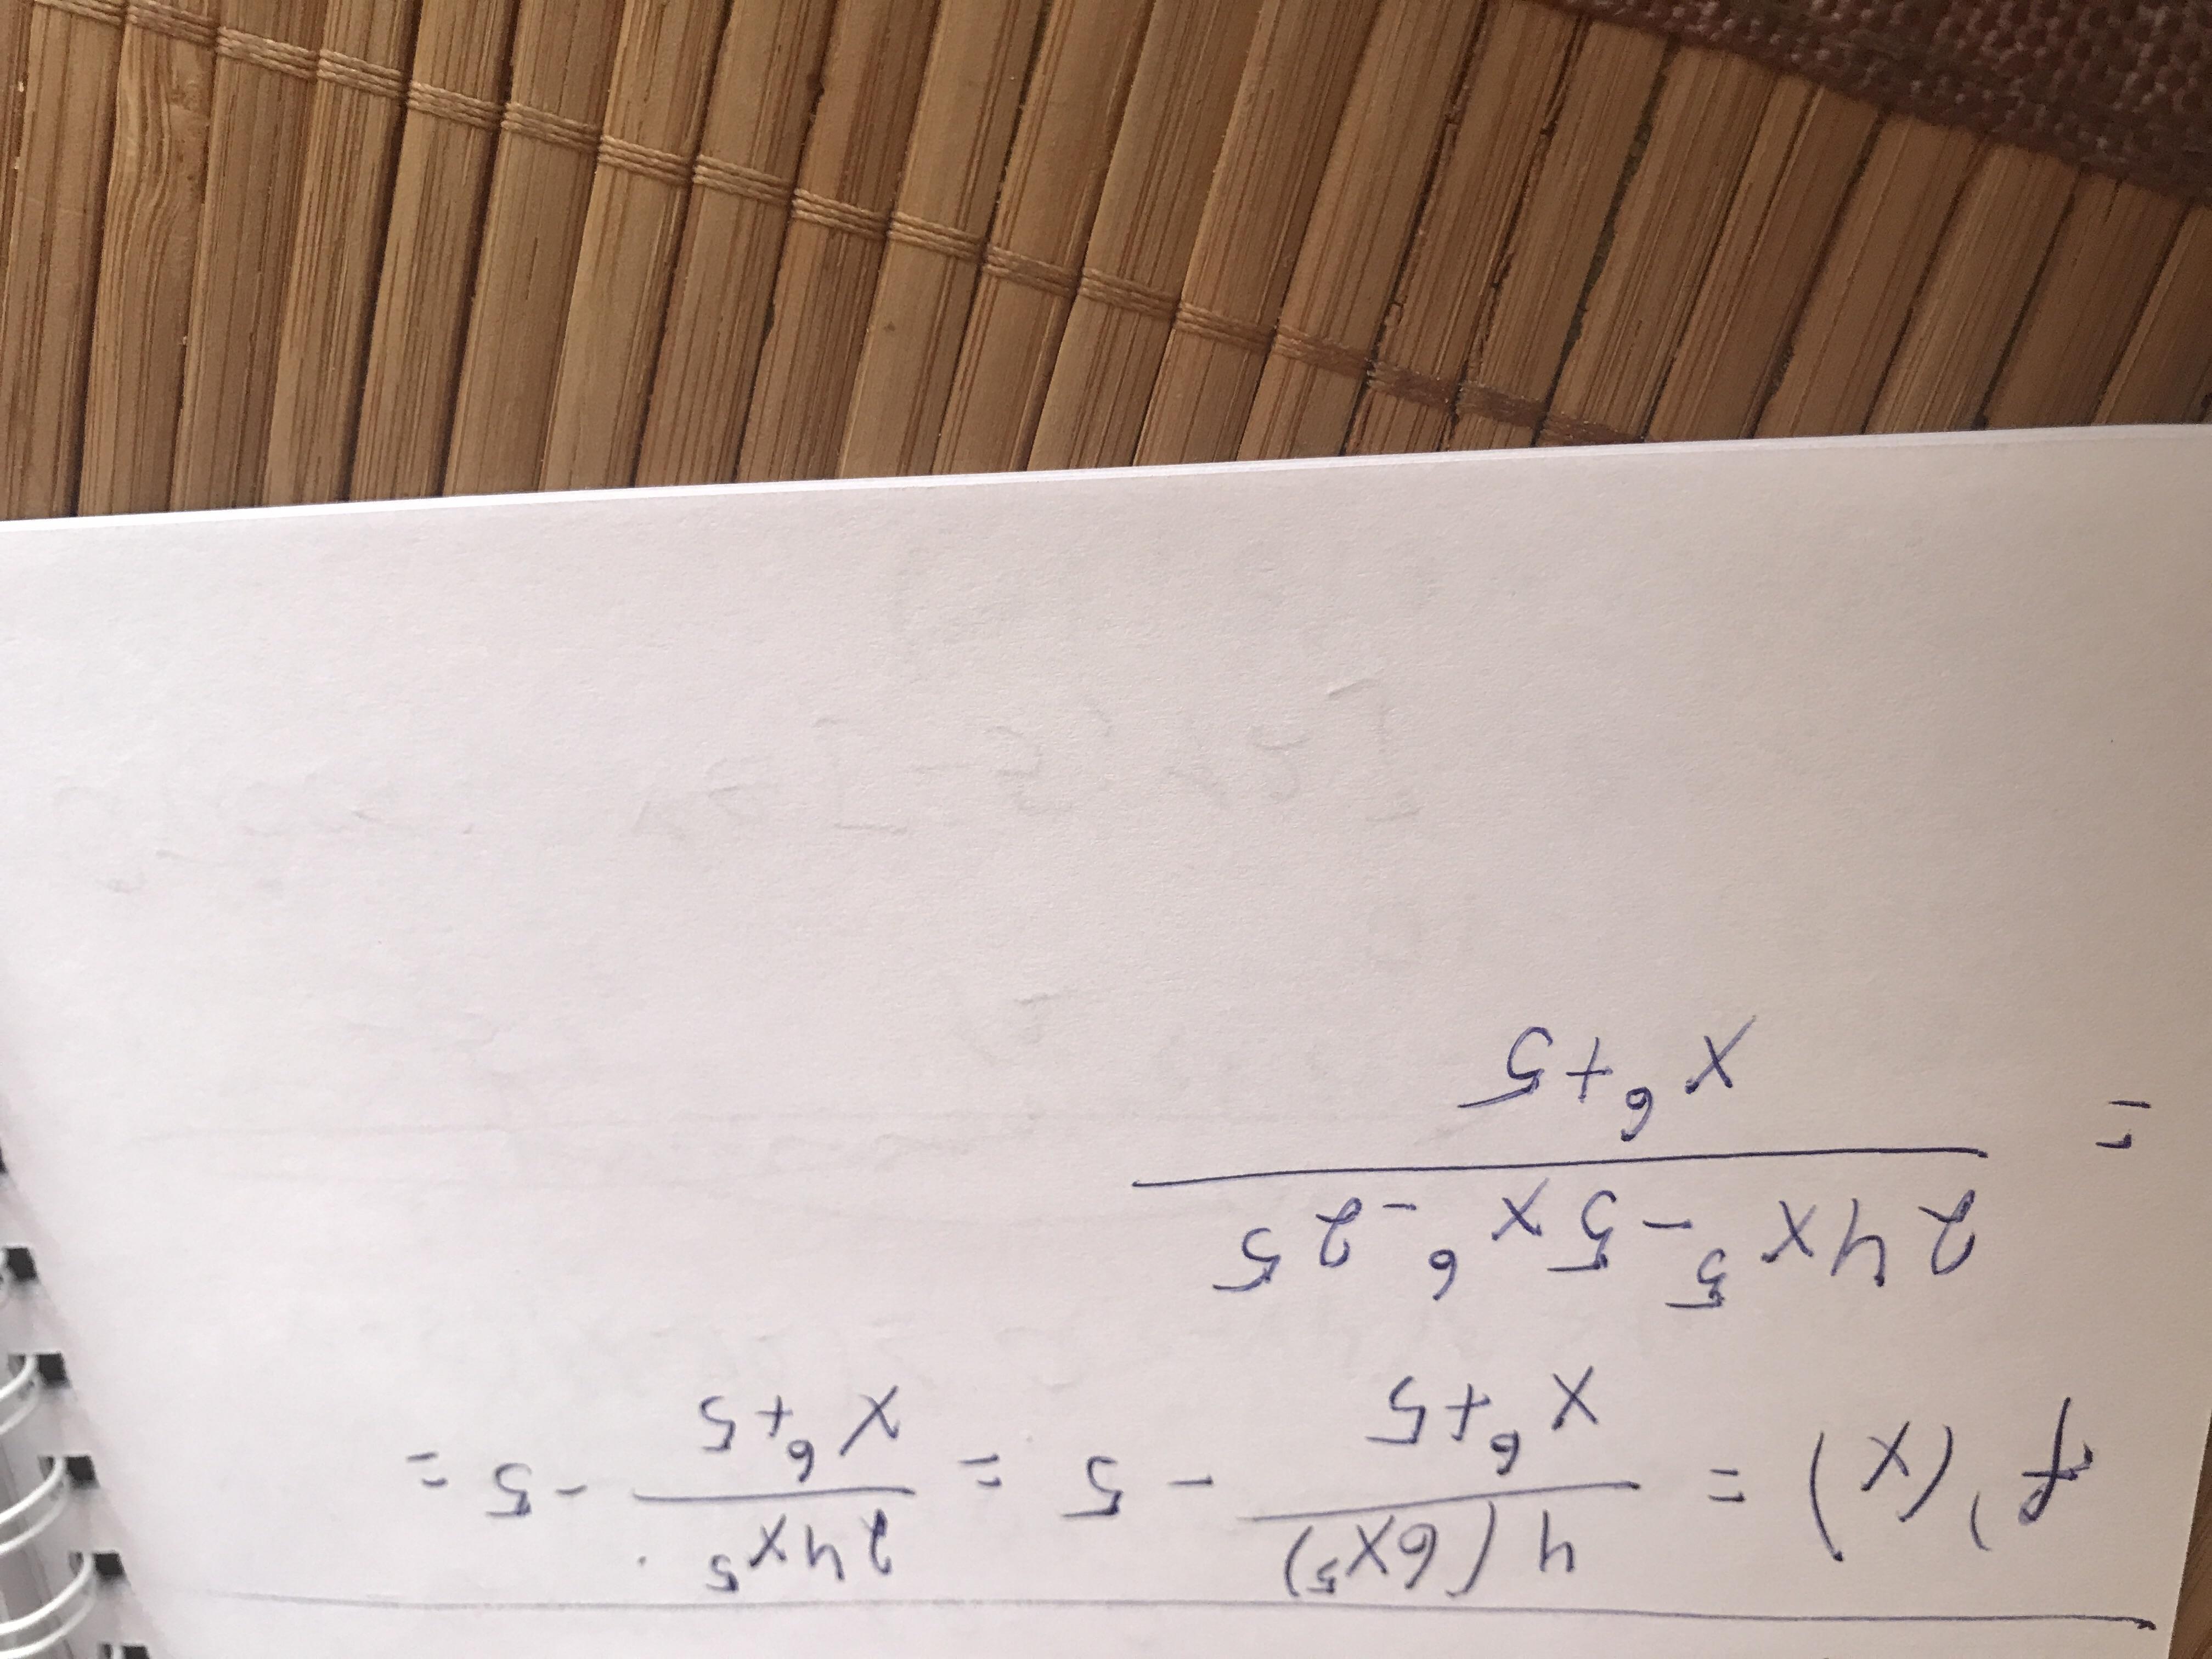 f'(x) = 4(6x⁵)/x⁶+5 - 5 = 24x⁵/x⁶+5 - 5 =
= 24x⁵-5x⁶-25/x⁶+5